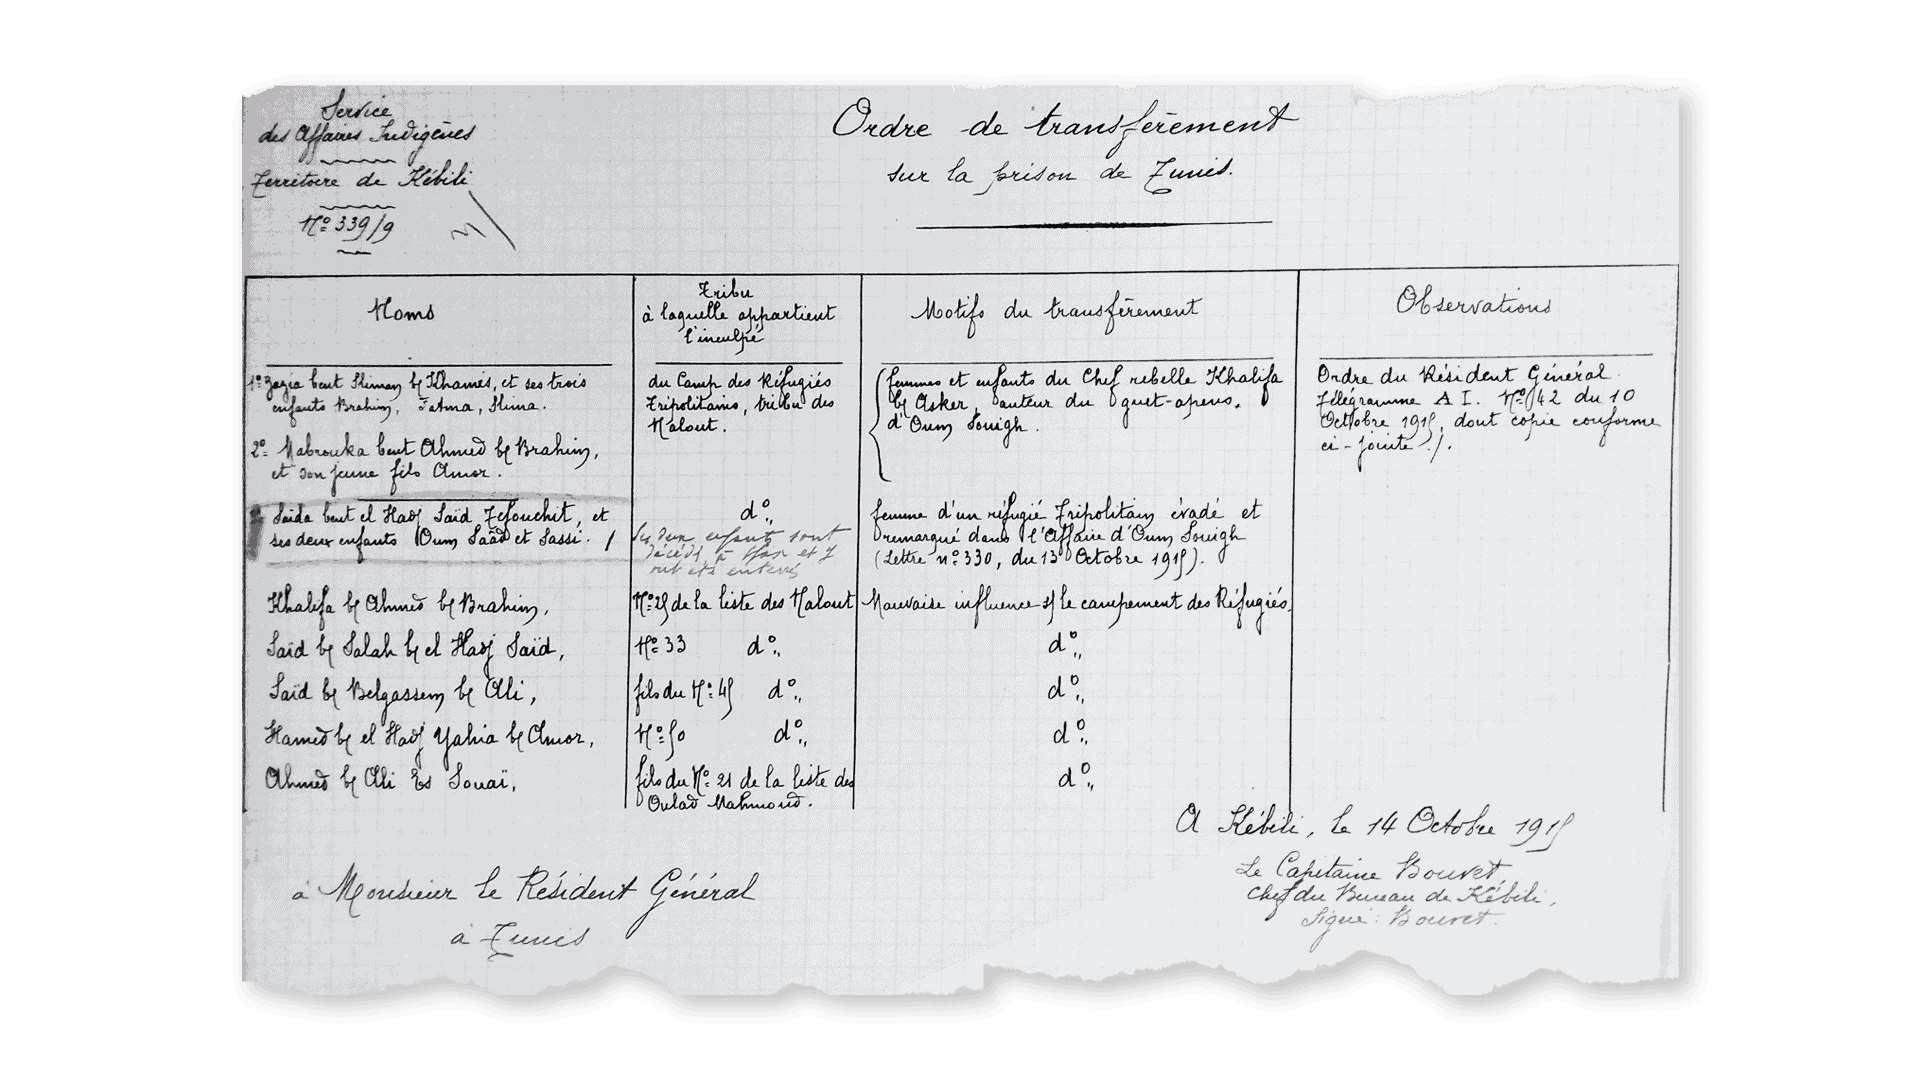 Service
des Affaires Indigènes
Territoire de Kébili
Nº 339/9
Ordre de transfèrement
sur la prison de Tunis.
Noms
Tribu
à laquelle appartient
l'inculpé
Motifs du transfèrement
Observations
1º Zazia bent Sliman b/ Khamés, et ses trois
enfants Brahim, Fatma, Slima.
du Camp des Réfugiés
Tripolitains, tribu des
Nalout.
femmes et enfants du Chef rebelle Khalifa
b/ Asker, auteur du guet-apens.
d'Oum Souigh.
Ordre du Résident Général
Télégramme A I. Nº 42 du 10
Octobre 1915, dont copie conforme
ci-jointe ./.
2º Mabrouka bent Ahmed b/ Brahim,
et son jeune fils Amor.
Saida bent el Hadj Saïd Zefouchit, et
ses deux enfants Oum Saâd et Sassi. /
dº,,
Ses deux enfants sont
décédés à Sfax et y
ont été enterrés
femme d'un réfugié Tripolitain évadé et
remarqué dans l'Affaire d'Oum Souigh
(Lettre nº 330, du 13 Octobre 1915).
Khalifa b/ Ahmed b/ Brahim,
Nº 25 de la liste des Nalout
Mauvaise influence s/ le campement des Réfugiés.
Saïd b/ Salah b/ el Hadj Saïd,
Nº 33 dº,,
dº,,
Saïd b/ Belgassem b/ Ali,
fils du Nº 45 dº,,
dº,,
Hamed b/ el Hadj Yahia b/ Amor,
Nº 50 dº,,
dº,,
Ahmed b/ Ali Es Souaï,
fils du Nº 21 de la liste des
Oulad Mahmoud.
dº,,
A Kébili, le 14 Octobre 1915
Le Capitaine Bouvet,
Chef du Bureau de Kébili,
Signé: Bouvet.
à Monsieur le Résident Général
à Tunis